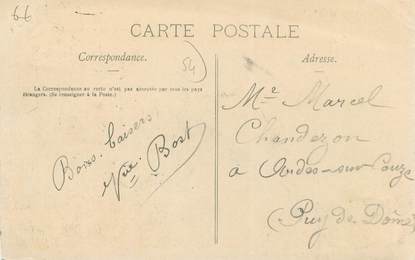 66
CARTE POSTALE
Correspondance.
Adresse.
54
La Correspondance au recto n'est pas acceptée par tous les pays
étrangers. (Se renseigner à la Poste.)
Bons baisers
Vve. Bost
Me Marcel
Chandezon
a Ardes-sur-Couze
(Puy de Dôme)